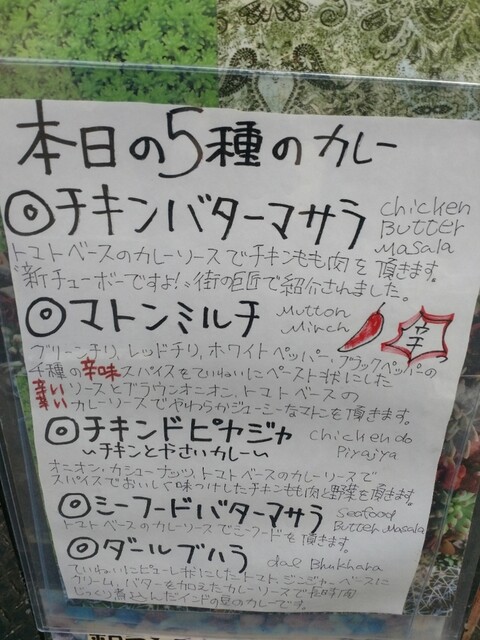 本日の5種のカレー
◎チキンバターマサラ
chicken
Butter
Masala
トマトベースのカレーソースでチキンもも肉を頂きます。
"新チューボーですよ!"街の巨匠で紹介されました。
◎マトンミルチ
Mutton
Mirch
グリーンチリ,レッドチリ,ホワイトペッパー,ブラックペッパーの
4種の辛味スパイスをていねいにペースト状にした
辛いソースとブラウンオニオン,トマトベースの
辛いカレーソースでやわらかジューシーなマトンを頂きます。
◎チキンドピヤジャ
chicken do
Piyajya
~チキンとやさいカレー~
オニオン,カシューナッツ,トマトベースのカレーソースで
スパイスでおいしく味つけしたチキンもも肉と野菜を頂きます。
◎シーフードバターマサラ
Seafood
Butter Masala
トマトベースのカレーソースでシーフードを頂きます。
◎ダールブハラ
dal Bhukhara
ていねいにピューレ状にしたトマト,ジンジャーベースに
クリーム,バターを加えたカレーソースで長時間
じっくり煮込んだインドの豆のカレーです。